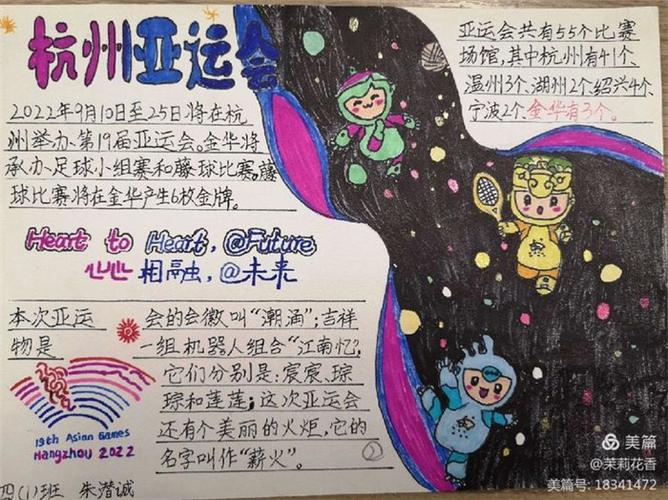 杭州亚运会
2022年9月10日至25日将在杭
州举办第19届亚运会。金华将
承办足球小组赛和藤球比赛,藤
球比赛将在金华产生6枚金牌。
Heart to Heart, @Future
心心相融,@未来
亚运会共有55个比赛
场馆,其中杭州有41个、
温州3个、湖州2个、绍兴4个、
宁波2个、金华有3个。
本次亚运会的会徽叫“潮涌”;吉祥
物是一组机器人组合“江南忆”,
它们分别是:宸宸、琮
琮和莲莲;这次亚运会
还有个美丽的火炬,它的
名字叫作“薪火”。
19th Asian Games
Hangzhou 2022
②
四(1)班 朱潜诚
美篇
@茉莉花香
美篇号: 18341472